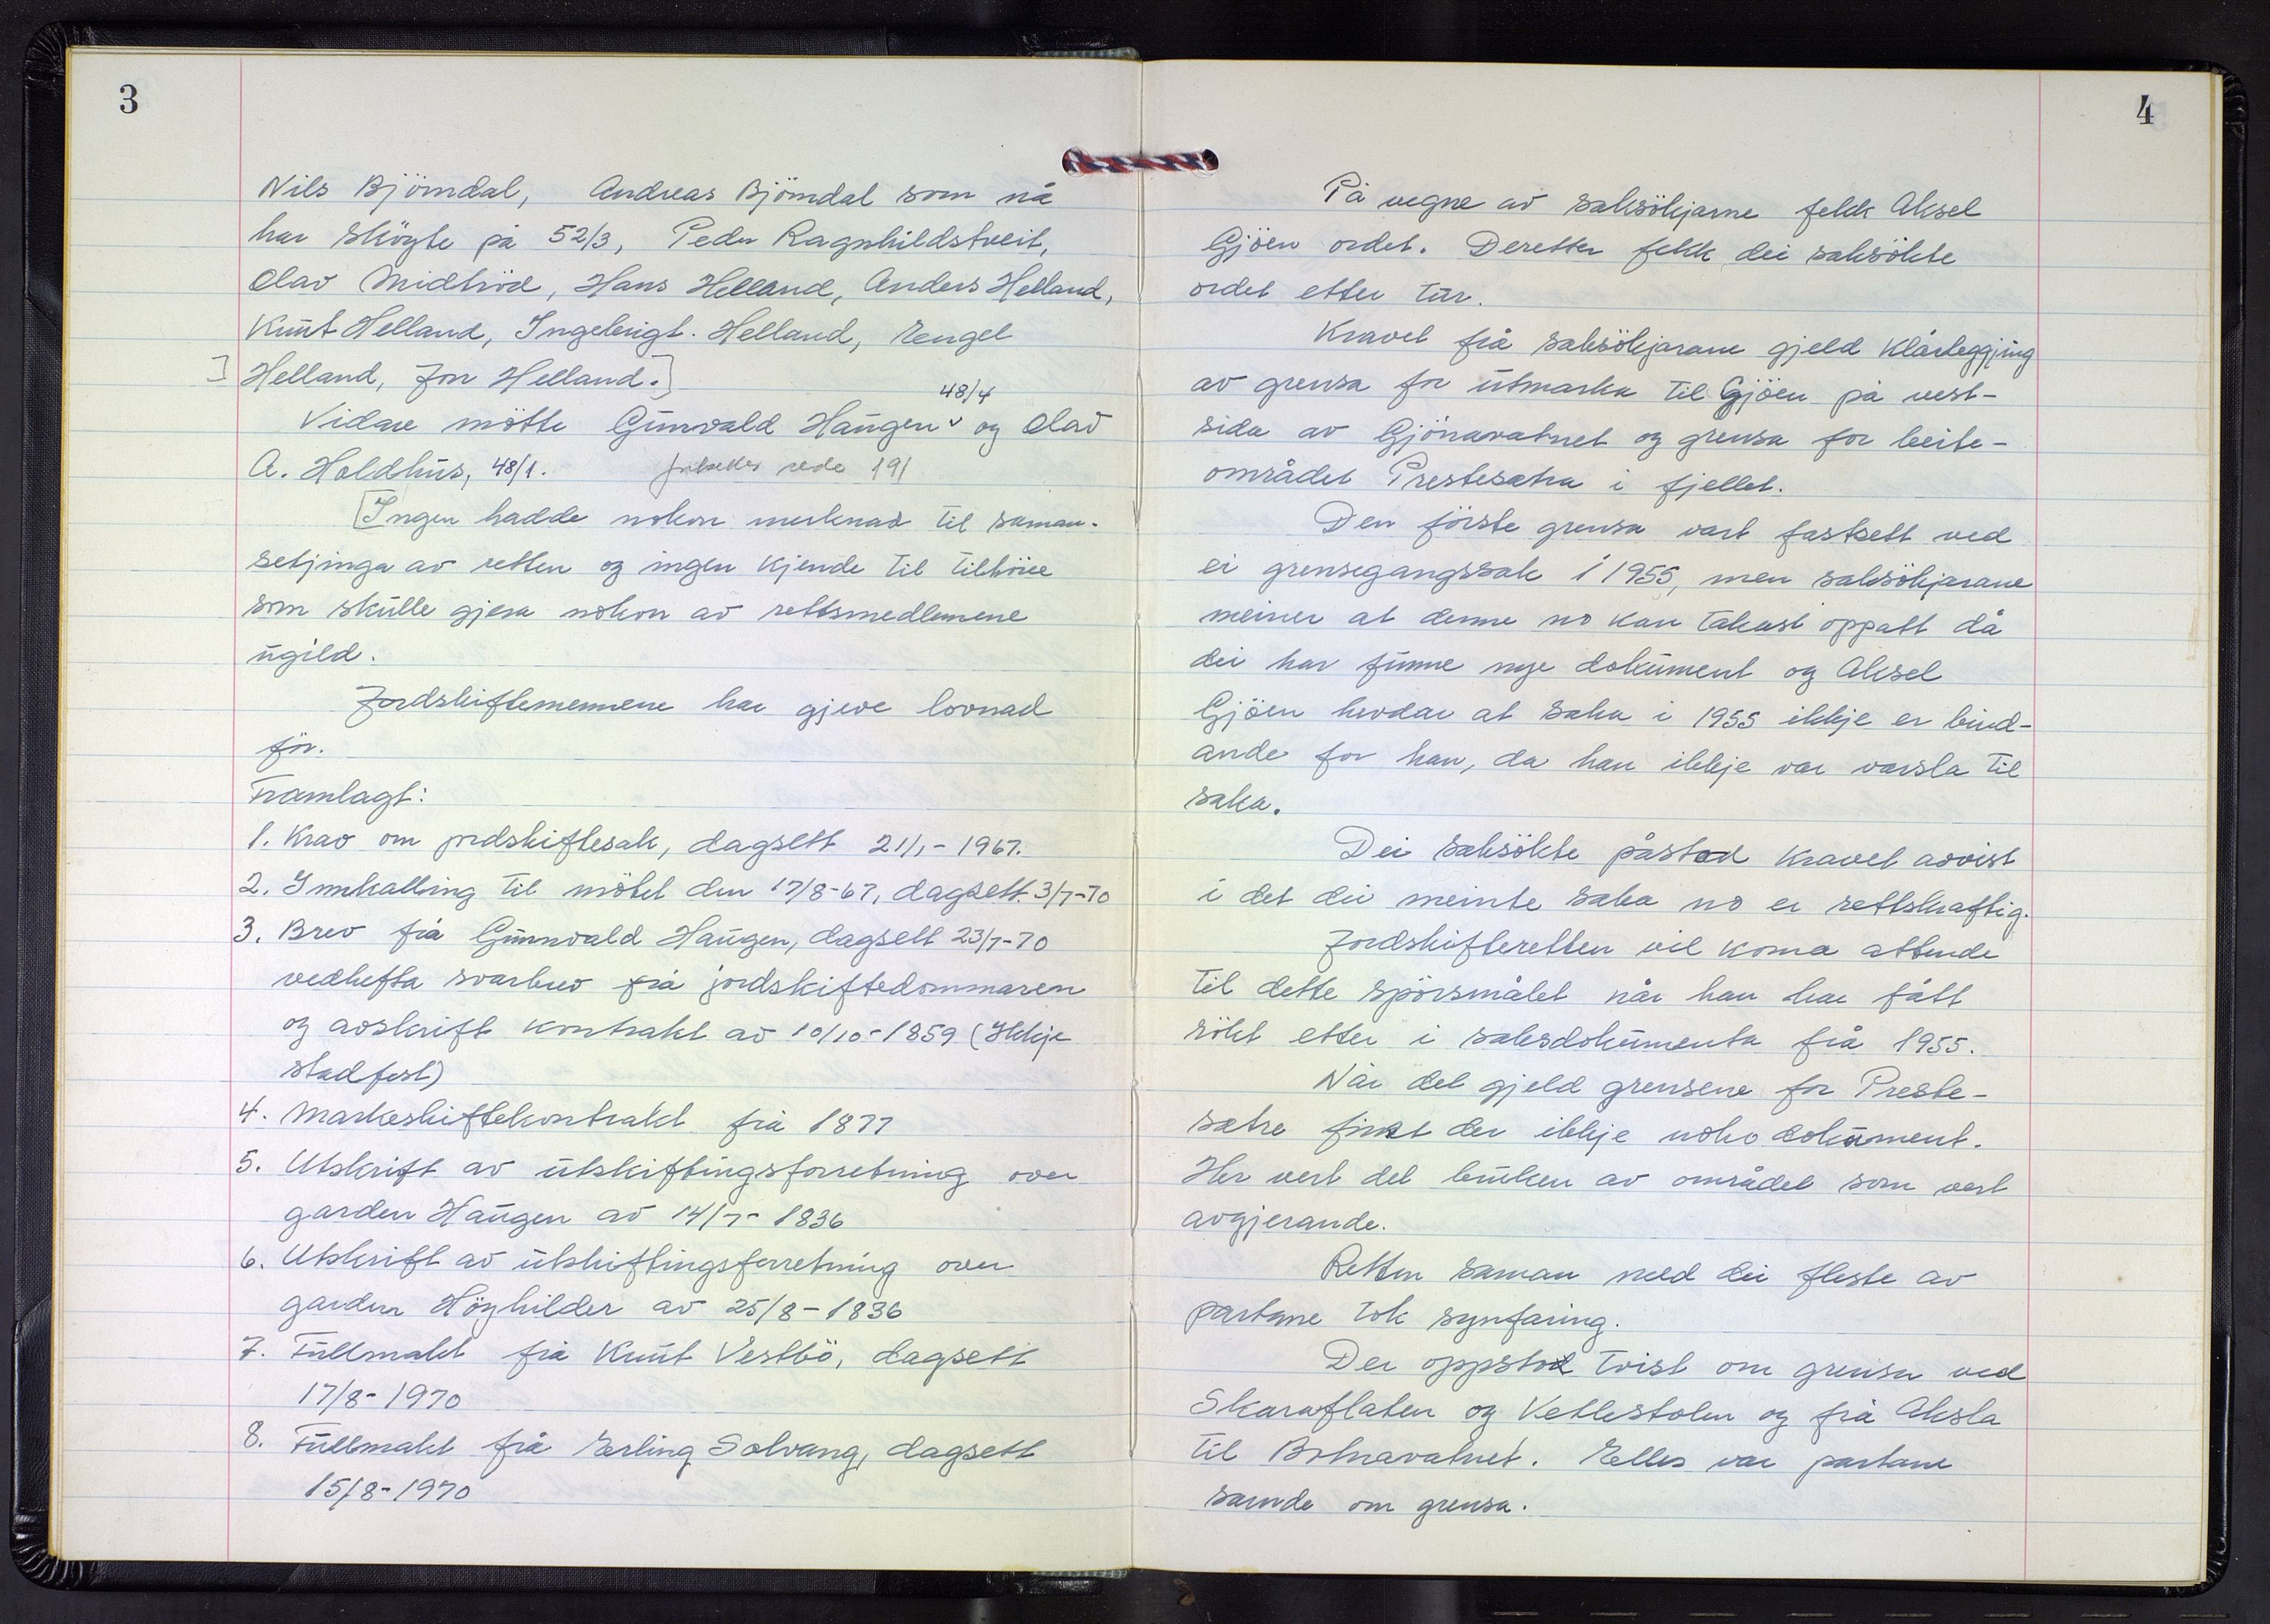 3
Nils Bjömdal, Andreas Bjömdal som nå
har sköyte på 52/3, Peder Ragnhildstveit,
Olav Midthröd, Hans Helland, Anders Helland,
Knut Helland, Ingebrigt. Helland, Rengel
Helland, Jon Helland.]
48/4
Vidare mötte Gunvald Haugen og Olav
A. Holdhus, 48/1. side 191
[Ingen hadde nokon merknad til saman-
setjinga av retten og ingen kjende til tilhöve
som skulle gjera nokon av rettsmedlemene
ugild.
Jordskiftemennene har gjeve lovnad
för.
Framlagt:
1. Krav om jordskiftesak, dagsett 21/1-1967.
2. Innkalling til mötet den 17/8-67, dagsett 3/7-70
3. Brev frå Gunnvald Haugen, dagsett 23/7-70
vedhefta svarbrev frå jordskiftedommaren
og avskrift kontrakt av 10/10-1859 (Ikkje
stadfest)
4. Markeskiftekontrakt frå 1877
5. Utskrift av utskiftingsforretning over
garden Haugen av 14/7-1836
6. Utskrift av utskiftingsforretning over
garden Höyhilder av 25/8-1836
7. Fullmakt frå Knut Vestbö, dagsett
17/8-1970
8. Fullmakt frå Erling Solvang, dagsett
15/8-1970
4
På vegne av saksökjarne fekk Aksel
Gjöen ordet. Deretter fekk dei saksökte
ordet etter tur.
Kravet frå saksökjarane gjeld klårleggjing
av grensa for utmarka til Gjöen på vest-
sida av Gjönavatnet og grensa for beite-
området Prestesætra i fjellet.
Den förste grensa vart fastsett ved
ei grensegangssak i 1955, men saksökjarane
meiner at denne no kan takast oppatt då
dei har funne nye dokument og Aksel
Gjöen hevdar at saka i 1955 ikkje er bind-
ande for han, da han ikkje var varsla til
saka.
Dei saksökte påstod kravet avvist
i det dei meinte saka no er rettskraftig.
Jordskifteretten vil koma attende
til dette spörsmålet når han har fått
sökt etter i saksdokumenta frå 1955.
Når det gjeld grensene for Preste-
sætre finst der ikkje noko dokument.
Her vert det bruken av området som vert
avgjerande.
Retten saman med dei fleste av
partane tok synfaring.
Der oppstod tvist om grensa ved
Skaraflaten og Vetlestolen og frå Aksla
til Botnavatnet. Elles var partane
samde om grensa.